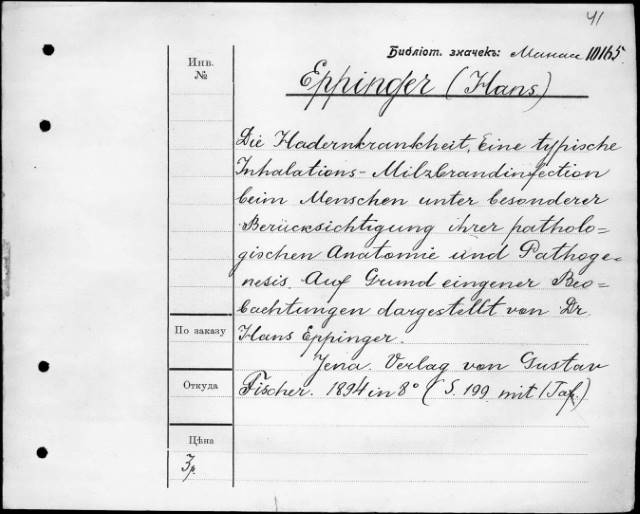 41
Библіот. значекъ: 10165.
Инв.
№
Eppinger (Hans)
Die Hadernkrankheit, Eine typische
Inhalations-Milzbrandinfection
beim Menschen unter besonderer
Berücksichtigung ihrer patholo=
gischen Anatomie und Pathoge=
nesis. Auf Grund eingener Beo=
bachtungen dargestellt von Dr.
Hans Eppinger.
По заказу
Jena. Verlag von Gustav
Fischer. 1894 in 8° (S. 199 mit 1 Taf.)
Откуда
Цѣна
3р.